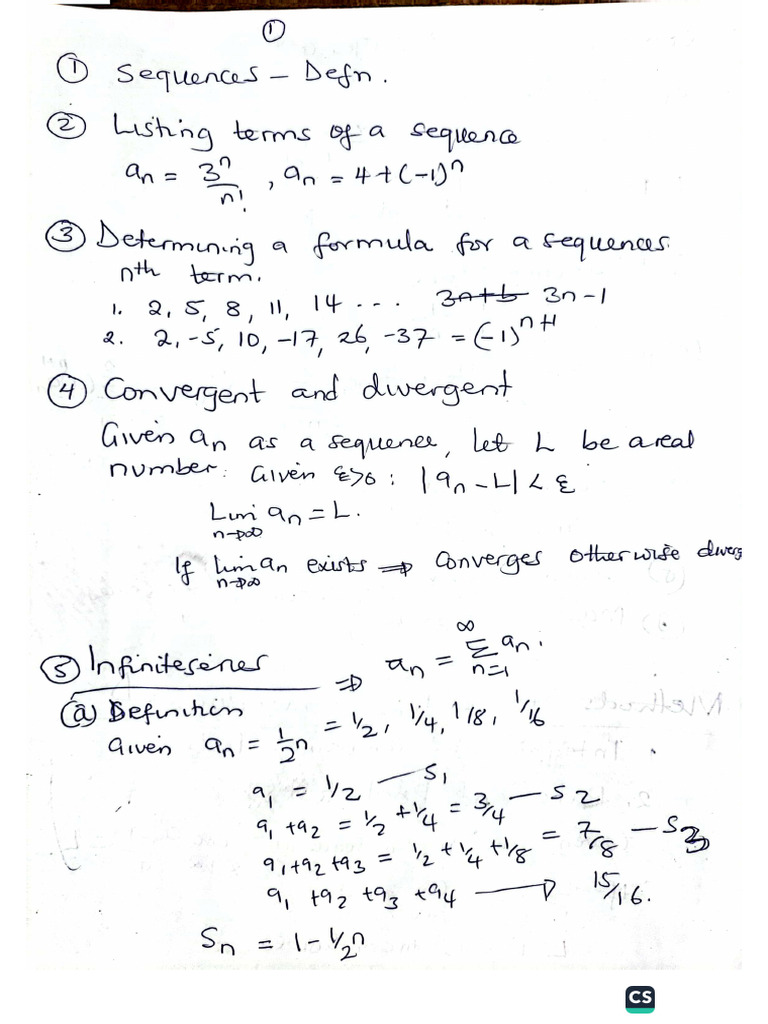 ①
① Sequences - Defn.
② Listing terms of a sequence
aₙ = 3ⁿ/n! , aₙ = 4+(-1)ⁿ
③ Determining a formula for a sequences
nth term.
1. 2, 5, 8, 11, 14 ... 3n+b 3n-1
2. 2, -5, 10, -17, 26, -37 = (-1)ⁿ⁺¹
④ Convergent and divergent
Given aₙ as a sequence, let L be a real
number: Given ε>0 : |aₙ - L| < ε
Lim n→∞ aₙ = L.
If lim n→∞ aₙ exists ⇒ Converges otherwise diverg
⑤ Infinite series ⇒ aₙ = ∞ Σ n=1 aₙ.
(a) Definition
Given aₙ = 1/2ⁿ = 1/2, 1/4, 1/8, 1/16
a₁ = 1/2 — S₁
a₁ + a₂ = 1/2 + 1/4 = 3/4 — S2
a₁+a₂+a₃ = 1/2 + 1/4 + 1/8 = 7/8 — S3
a₁ + a₂ + a₃ + a₄ → 15/16.
Sₙ = 1 - 1/2ⁿ
CS